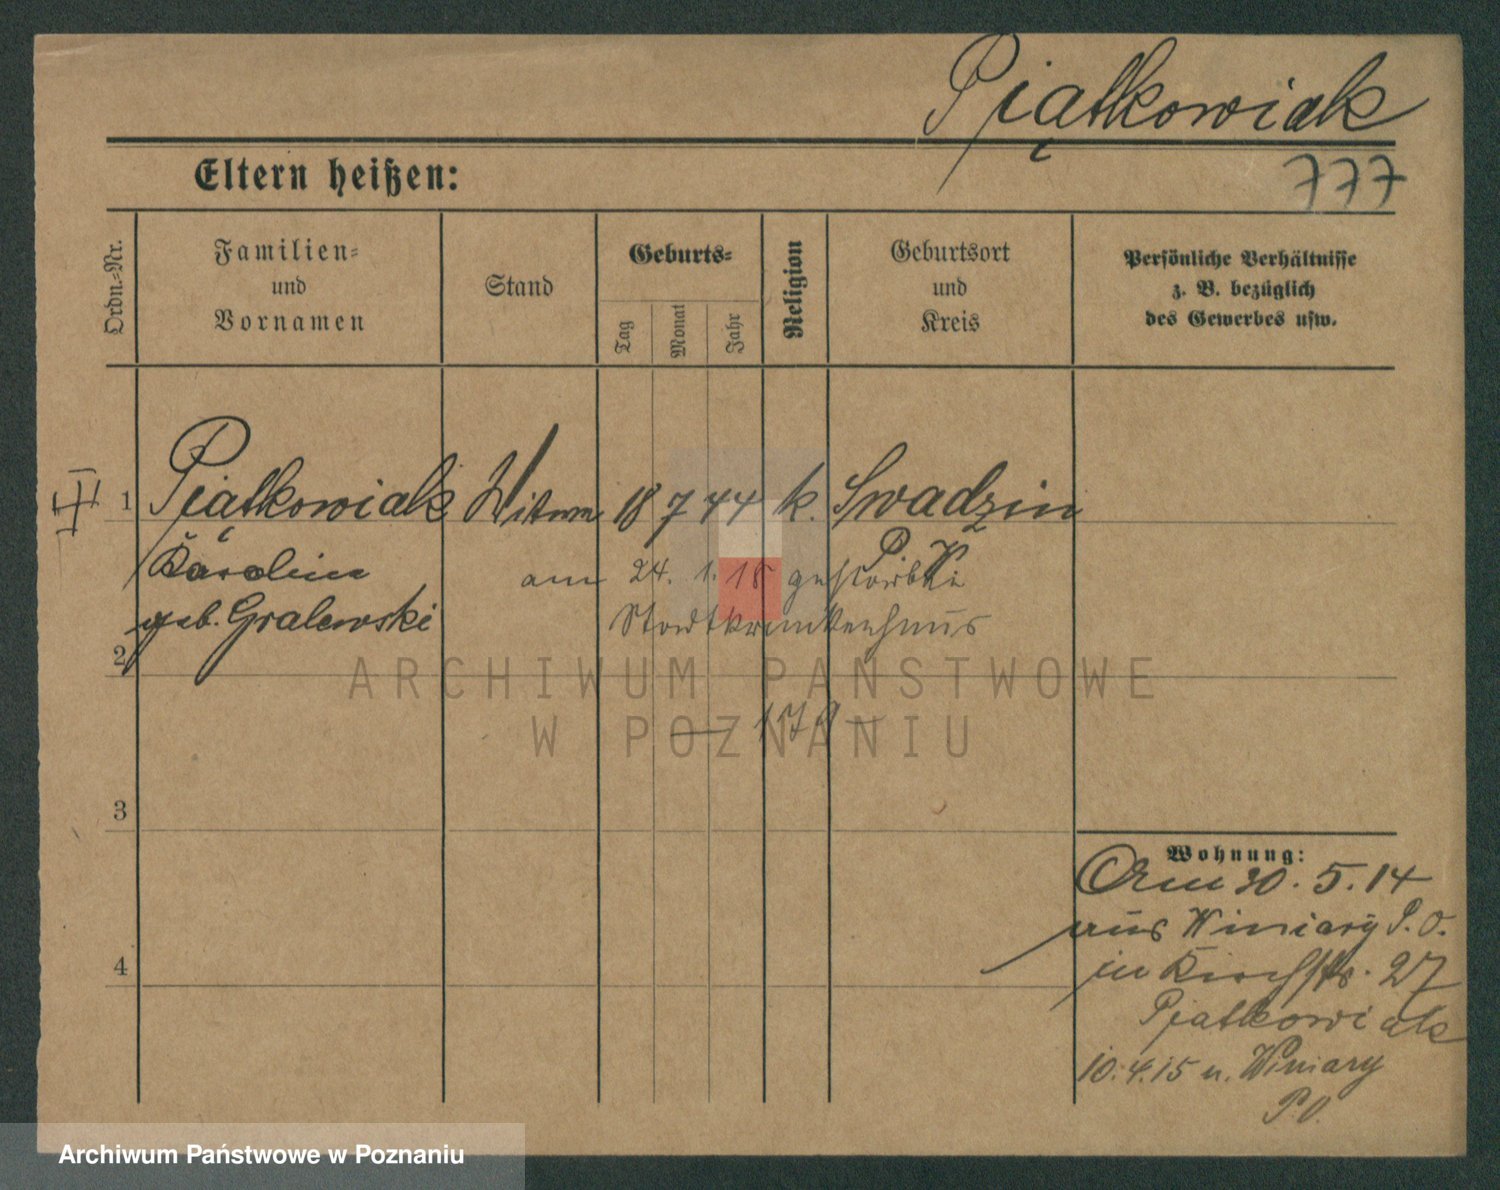 Piątkowiak
777
Eltern heißen:
Ordn.-Nr.
Familien-
und
Vornamen
Stand
Geburts-
Tag
Monat
Jahr
Religion
Geburtsort
und
Kreis
Persönliche Verhältnisse
z. B. bezüglich
des Gewerbes usw.
1 Piątkowiak Witwe 18 7 44 k. Swadzin
P. W.
Karolina
am 24. 1. 18 gestorben
geb. Gralewski
Stadtkrankenhaus
2
ARCHIWUM PAŃSTWOWE
W POZNANIU
3
4
Wohnung:
Am 30. 5. 14
aus Winiary P. O.
in Kirchstr. 27
Piatkowiak
10. 4. 15 n. Winiary
P. O.
Archiwum Państwowe w Poznaniu